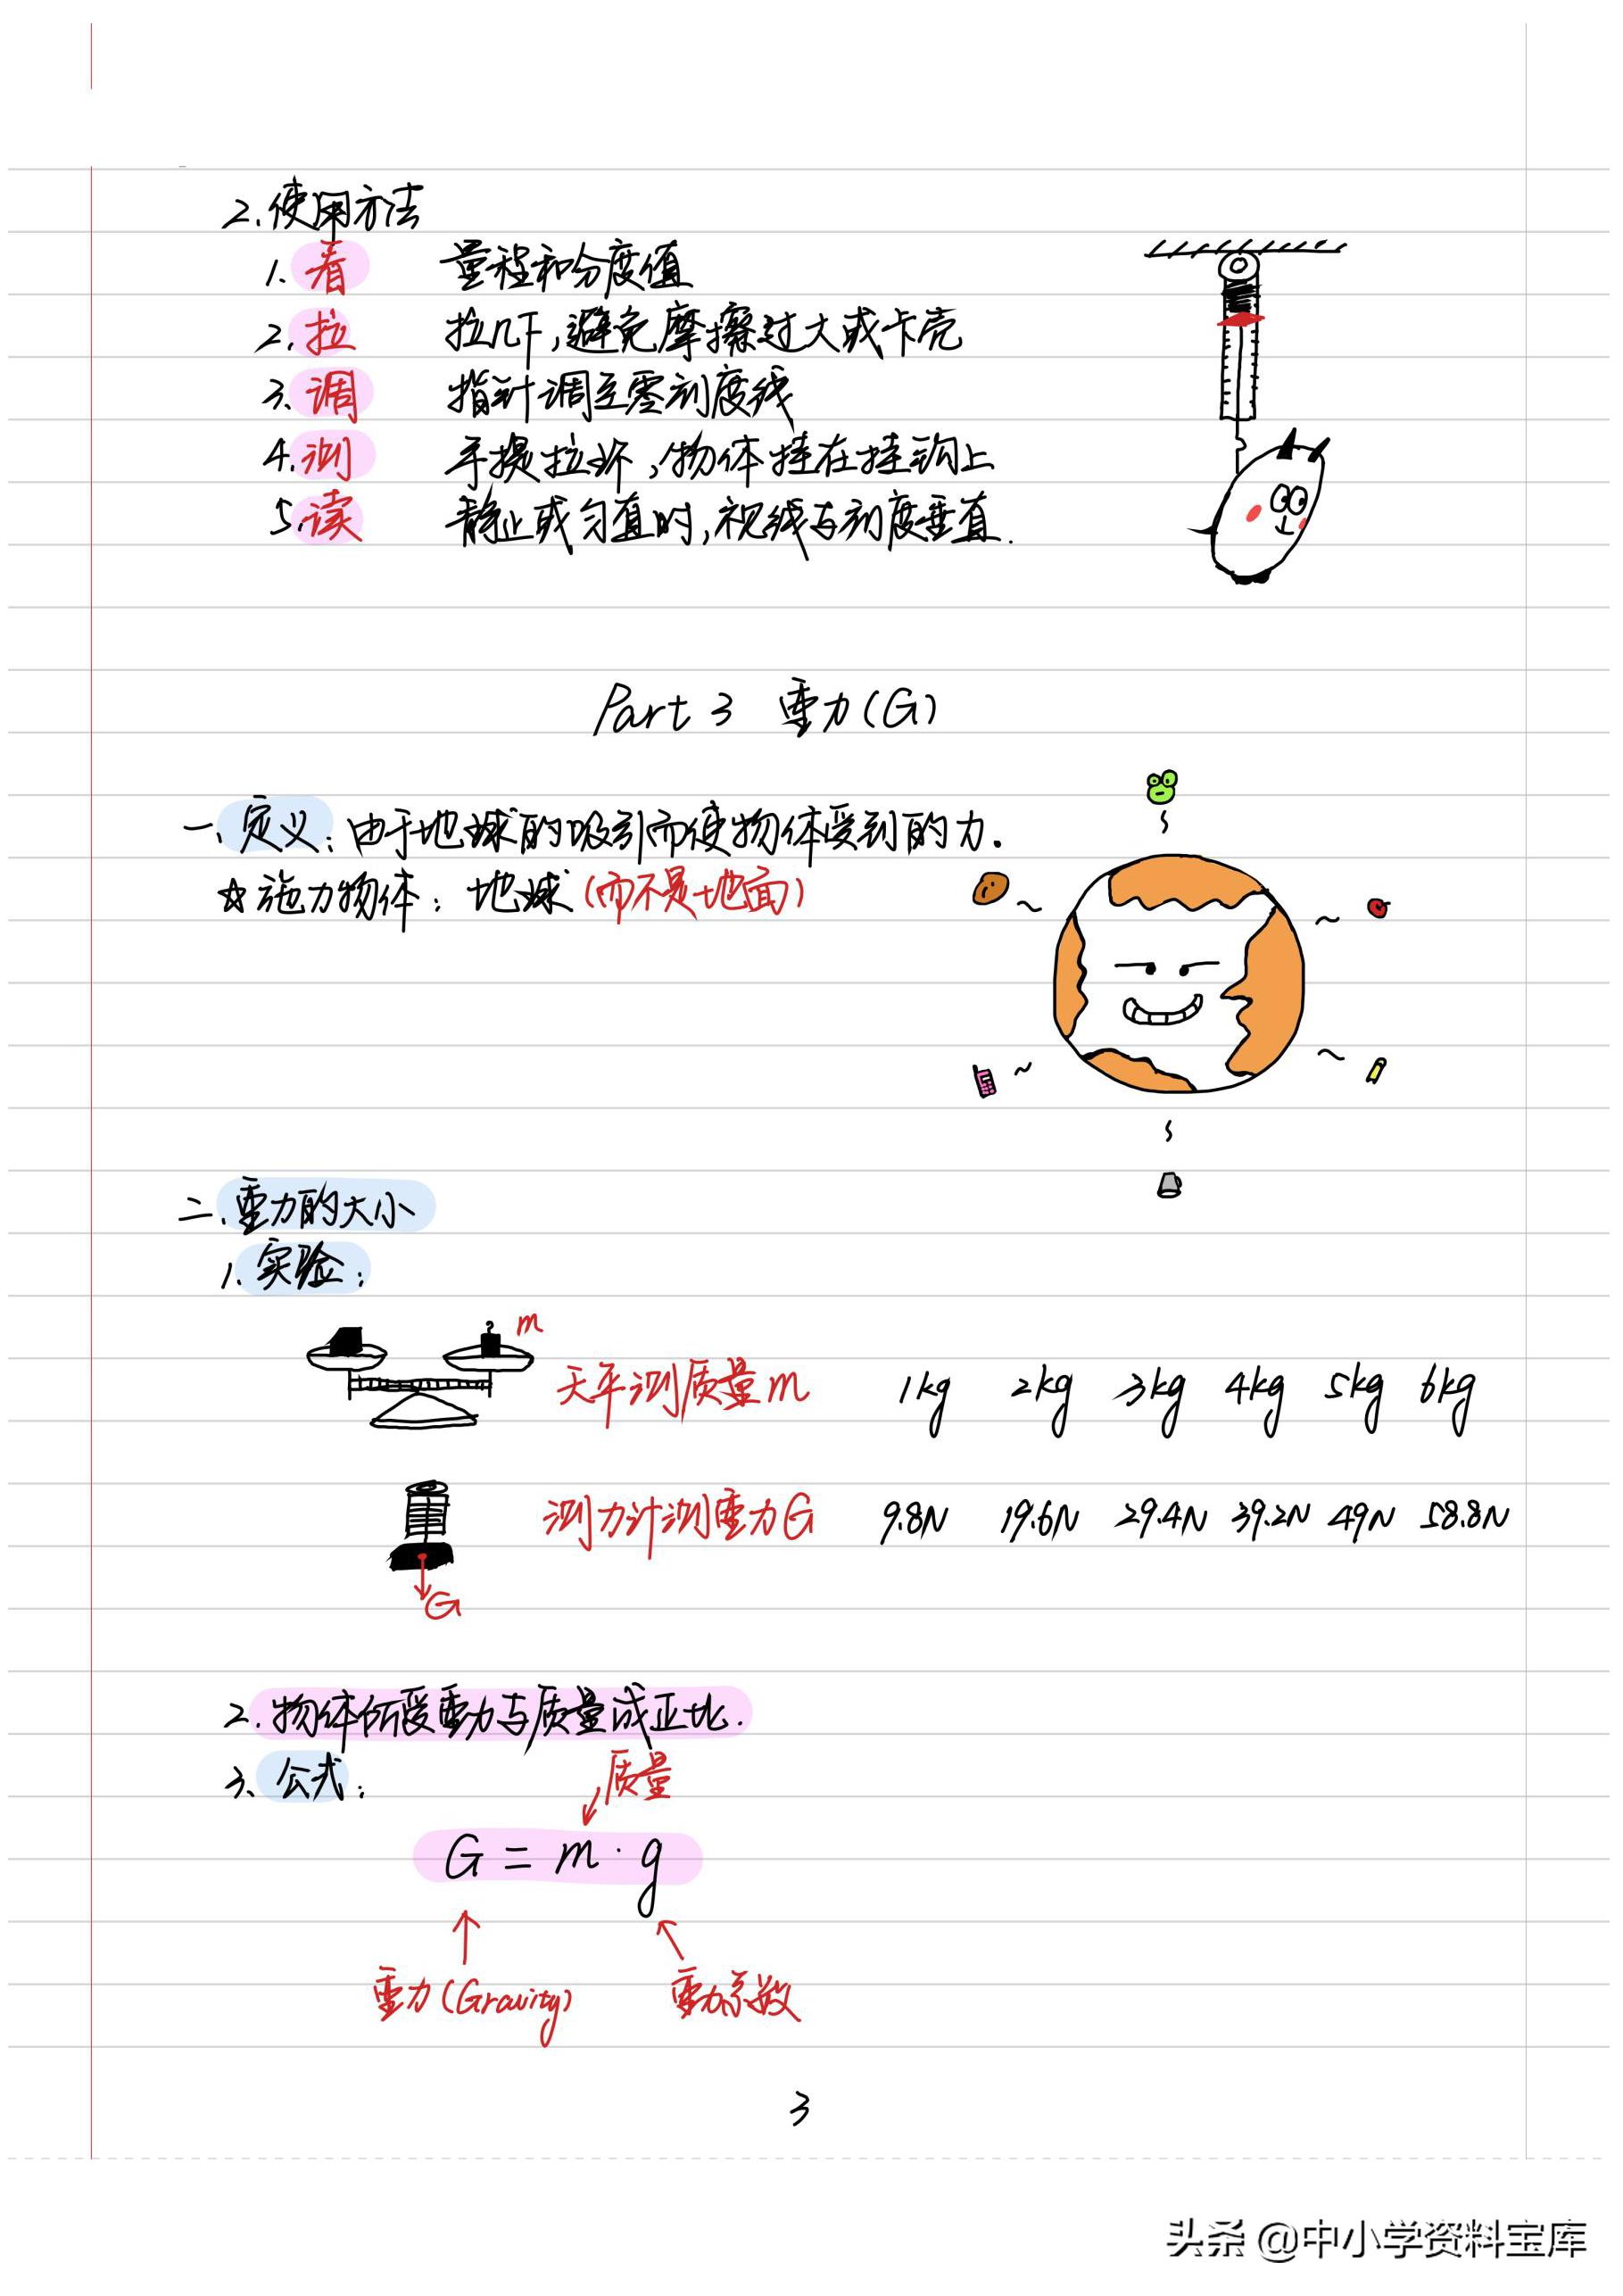 2.使用方法
1.看 量程和分度值
2.拉 拉几下,避免摩擦过大或卡壳
3.调 指针调至零刻度线
4.测 手提拉环,物体挂在挂钩上
5.读 静止或匀直时,视线与刻度垂直.
Part 3 重力(G)
一.定义:由于地球的吸引而使物体受到的力.
☆施力物体:地球(而不是地面)
二.重力的大小
1.实验:
m
天平测质量m 1kg 2kg 3kg 4kg 5kg 6kg
测力计测重力G 9.8N 19.6N 29.4N 39.2N 49N 58.8N
G
2.物体所受重力与质量成正比.
3.公式:
质量
G=m·g
重力(Gravity) 重力系数
3
头条 @中小学资料宝库